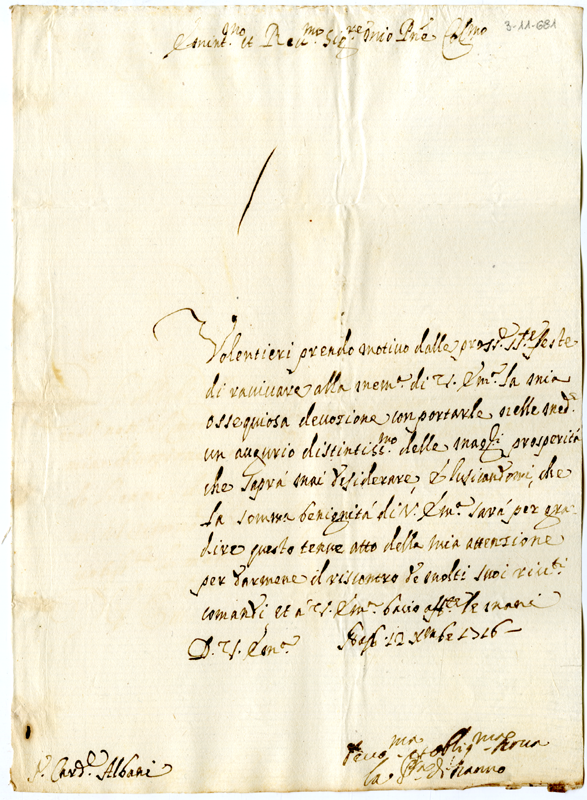 3-11-681
Emint.mo et Re.mo Sig.re mio Pne Col.mo
Volentieri prendo motivo dalle pross.e S.te feste
di ravivare alla mem.a di V. Em.a la mia
ossequiosa devozione con portarle nelle med.e
un augurio distintiss.mo delle magg.ri prosperità
che saprà mai desiderare, e lusicandomi, che
la somma benignità di V. Em.a sarà per gra-
dire questo tenue atto della mia attenzione
per darmene il riscontro de molti suoi rive.ti
comandi et a V. Em.a bacio aff.te le mani
D. V. Em.a 12 Xmbe 1716
Devo.ma et Oblig.ma Serva
la di
S. Card.e Albani